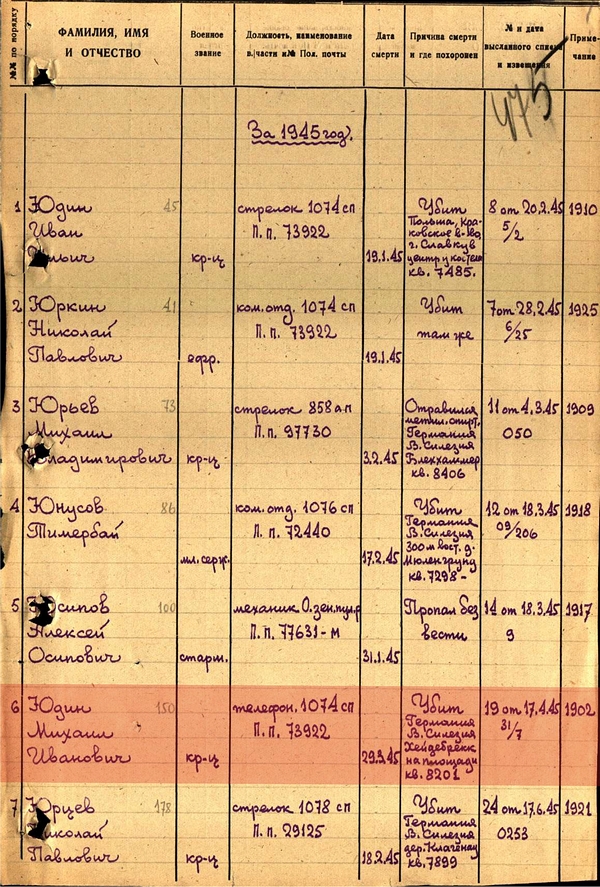 №№ по порядку
ФАМИЛИЯ, ИМЯ
И ОТЧЕСТВО
Военное
звание
Должность, наименование
в/части и № Пол. почты
Дата
смерти
Причина смерти
и где похоронен
№ и дата
высланного списка
и извещения
Приме-
чание
475
За 1945 год.
1 Юдин 45 стрелок 1074 сп Убит 8 от 20.2.45 1910
Иван П.п. 73922 Польша, Кра-
ковское в-во, 5/2
г. Славкув
кр-ц 19.1.45 центр у костела
кв. 7485.
2 Юркин 41 ком. отд. 1074 сп Убит 7 от 28.2.45 1925
Николай П.п. 73922 там же 6/25
Павлович ефр. 19.1.45
3 Юрьев 73 стрелок 858 ап Отравился 11 от 4.3.45 1909
метил. спирт.
Михаил П.п. 97730 Германия 050
В. Силезия
Владимирович кр-ц 3.2.45 Блеххаммер
кв. 8406
4 Юнусов 86 ком. отд. 1076 сп Убит 12 от 18.3.45 1918
Тимербай П.п. 72440 Германия 09/206
В. Силезия
300 м вост. д.
мл. серж. 17.2.45 Мюленгрунд
кв. 7298-
5 Юсипов 100 механик О. зен. пул. р Пропал без 14 от 18.3.45 1917
Алексей П.п. 77631-м вести 9
Осипович старш. 31.1.45
6 Юдин 150 телефон. 1074 сп Убит 19 от 17.4.45 1902
Михаил П.п. 73922 Германия 31/7
В. Силезия
Хейдебрекк
Иванович кр-ц 29.3.45 на площади
кв. 8201
7 Юрцев 178 стрелок 1078 сп Убит 24 от 17.6.45 1921
Николай П.п. 29125 Германия 0253
В. Силезия
дер. Клагенау
Павлович кр-ц 18.2.45 кв. 7899